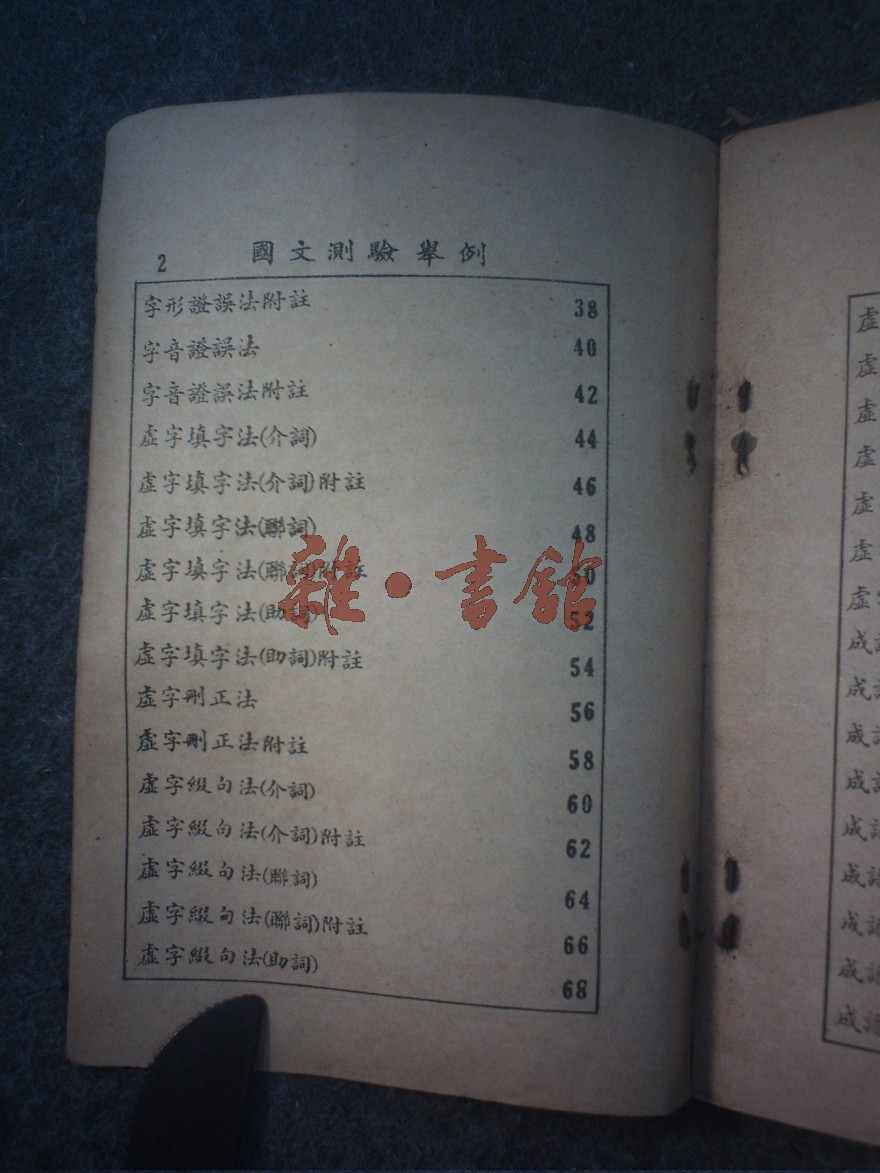 2 國文測驗舉例
字形證誤法附註 38
字音證誤法 40
字音證誤法附註 42
虛字填字法(介詞) 44
虛字填字法(介詞)附註 46
虛字填字法(聯詞) 48
虛字填字法(聯詞)附註 50
虛字填字法(助詞) 52
虛字填字法(助詞)附註 54
虛字刪正法 56
虛字刪正法附註 58
虛字綴句法(介詞) 60
虛字綴句法(介詞)附註 62
虛字綴句法(聯詞) 64
虛字綴句法(聯詞)附註 66
虛字綴句法(助詞) 68
雜·書館
虛
虛
虛
虛
虛
虛
虛字
成
成
成
成
成
成語
成語
成語
成語